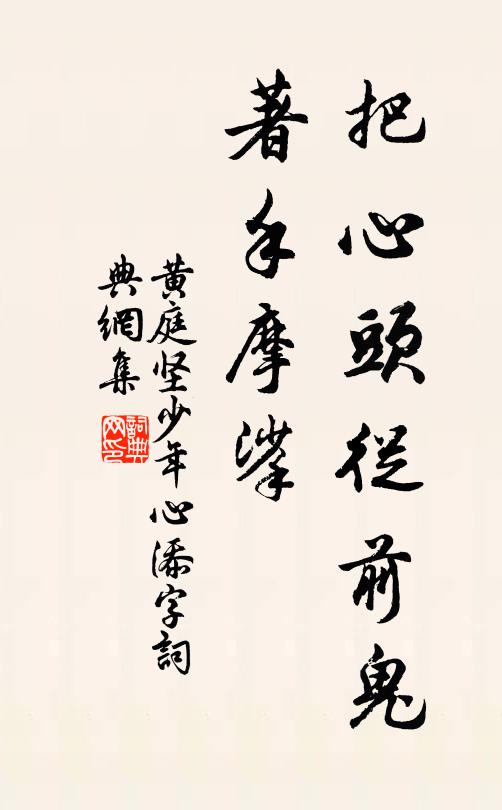 把心頭從前鬼
著手摩挲
黃庭坚少年心添字詞
典網集
詞典网印